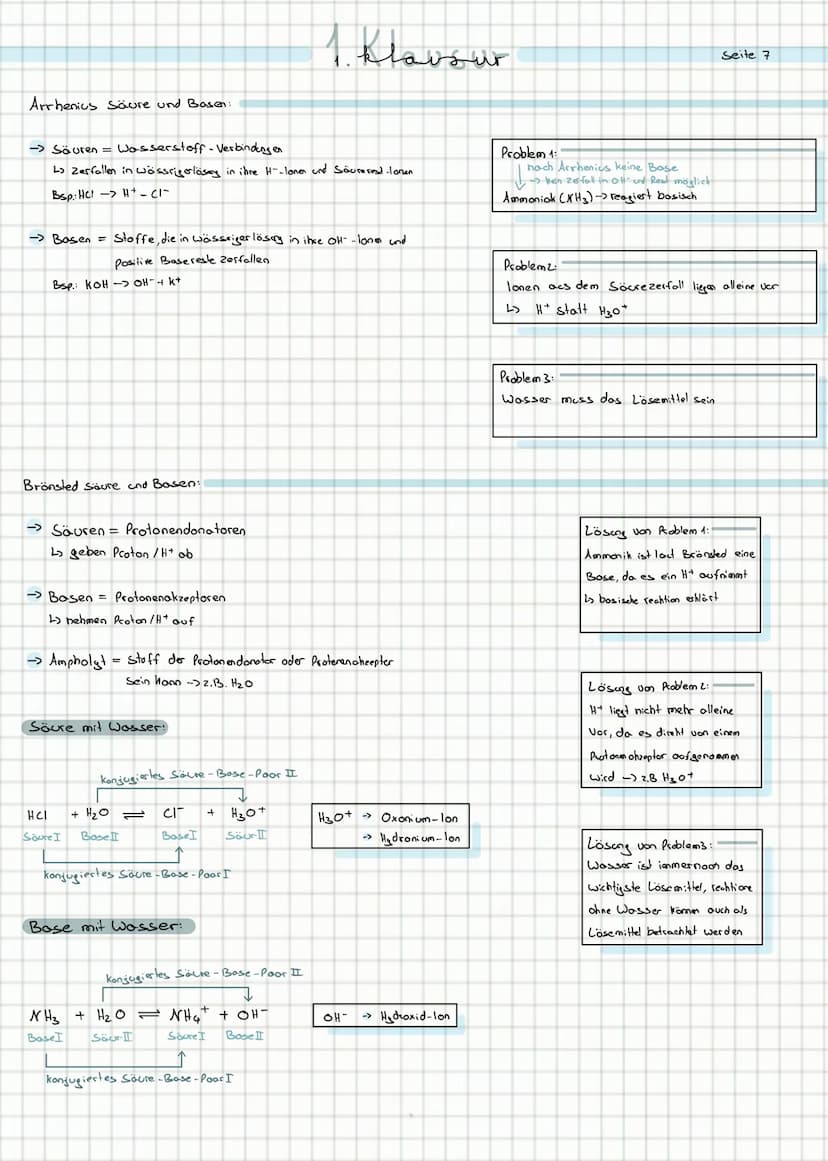 1. Klausur
1. Klausur
Seite 7
Arrhenius Säure und Basen:
→ Säuren = Wasserstoff-Verbindungen
↳ zerfallen in wässrigerlösung in ihre H⁺-Ionen und Säurerest-Ionen
Bsp.: HCl → H⁺ - Cl⁻
→ Basen = Stoffe, die in wässriger lösung in ihre OH⁻-Ionen und
positive Basereste zerfallen
Bsp.: KOH → OH⁻ + K⁺
Problem 1:
nach Arrhenius keine Base
→ kein Zerfall in OH⁻ und Rest möglich
Ammoniak (NH₃) → reagiert basisch
Problem 2:
Ionen aus dem Säurezerfall liegen alleine vor
↳ H⁺ statt H₃O⁺
Problem 3:
Wasser muss das Lösemittel sein
Brönsted Säure und Basen:
→ Säuren = Protonendonatoren
↳ geben Proton / H⁺ ab
→ Basen = Protonenakzeptoren
↳ nehmen Proton / H⁺ auf
→ Ampholyt = Stoff der Protonendonator oder Protenenakzeptor
sein kann → z.B. H₂O
Säure mit Wasser:
konjugiertes Säure-Base-Paar II
HCl + H₂O ⇌ Cl⁻ + H₃O⁺
Säure I Base II Base I Säur II
konjugiertes Säure-Base-Paar I
H₃O⁺ → Oxonium-Ion
→ Hydronium-Ion
Base mit Wasser:
konjugiertes Säure-Base-Paar II
NH₃ + H₂O ⇌ NH₄⁺ + OH⁻
Base I Säur II Säure I Base II
konjugiertes Säure-Base-Paar I
OH⁻ → Hydroxid-Ion
Lösung von Problem 1:
Ammonik ist laut Brönsted eine
Base, da es ein H⁺ aufnimmt
↳ basische reaktion erklärt
Lösung von Problem 2:
H⁺ liegt nicht mehr alleine
vor, da es direkt von einem
Protonenakzeptor aufgenommen
wird → z.B H₃O⁺
Lösung von Problem 3:
Wasser ist immernoch das
wichtigste Lösemittel, reaktione
ohne Wasser können auch als
Lösemittel betrachtet werden